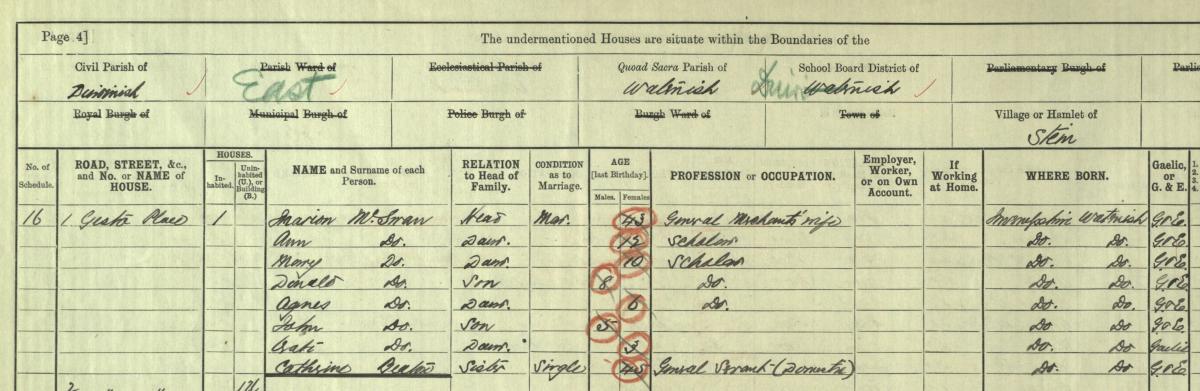 Page 4]
The undermentioned Houses are situate within the Boundaries of the
Civil Parish of
Duirinish
Parish Ward of
East
Ecclesiastical Parish of
Quoad Sacra Parish of
Waternish
School Board District of
Waternish
Parliamentary Burgh of
Parlia
Royal Burgh of
Municipal Burgh of
Police Burgh of
Burgh Ward of
Town of
Village or Hamlet of
Stein
No. of Schedule.
ROAD, STREET, &c., and No. or NAME of HOUSE.
HOUSES.
In-habited.
Unin-habited (U.), or Building (B.)
NAME and Surname of each Person.
RELATION to Head of Family.
CONDITION as to Marriage.
AGE [last Birthday].
Males.
Females
PROFESSION or OCCUPATION.
Employer, Worker, or on Own Account.
If Working at Home.
WHERE BORN.
Gaelic, or G. & E.
1. 2. 3. 4.
16 1 Place 1 Marion McSwan Head Mar. 43 Genral Merchants wife Waternish G.&E.
Ann Do. Daur. 12 Scholar Do. Do. G.&E.
Mary Do. Daur. 10 Scholar Do. Do. G.&E.
Donald Do. Son 8 Do. Do. Do. G.&E.
Agnes Do. Daur. 6 Do. Do. Do. G.&E.
John Do. Son 5 Do Do G.&E.
Do. Daur. 3 Do. Do. Gaelic
Cathrine Beaton Sister Single 45 Genral Servant (Domestic) Do. Do. G.&E.